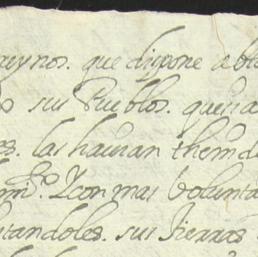 reynos. que dispone abla
sus Pueblos. queria
es. las hauian themdo
mo. Y con mas volunta
tandoles. sus tierras